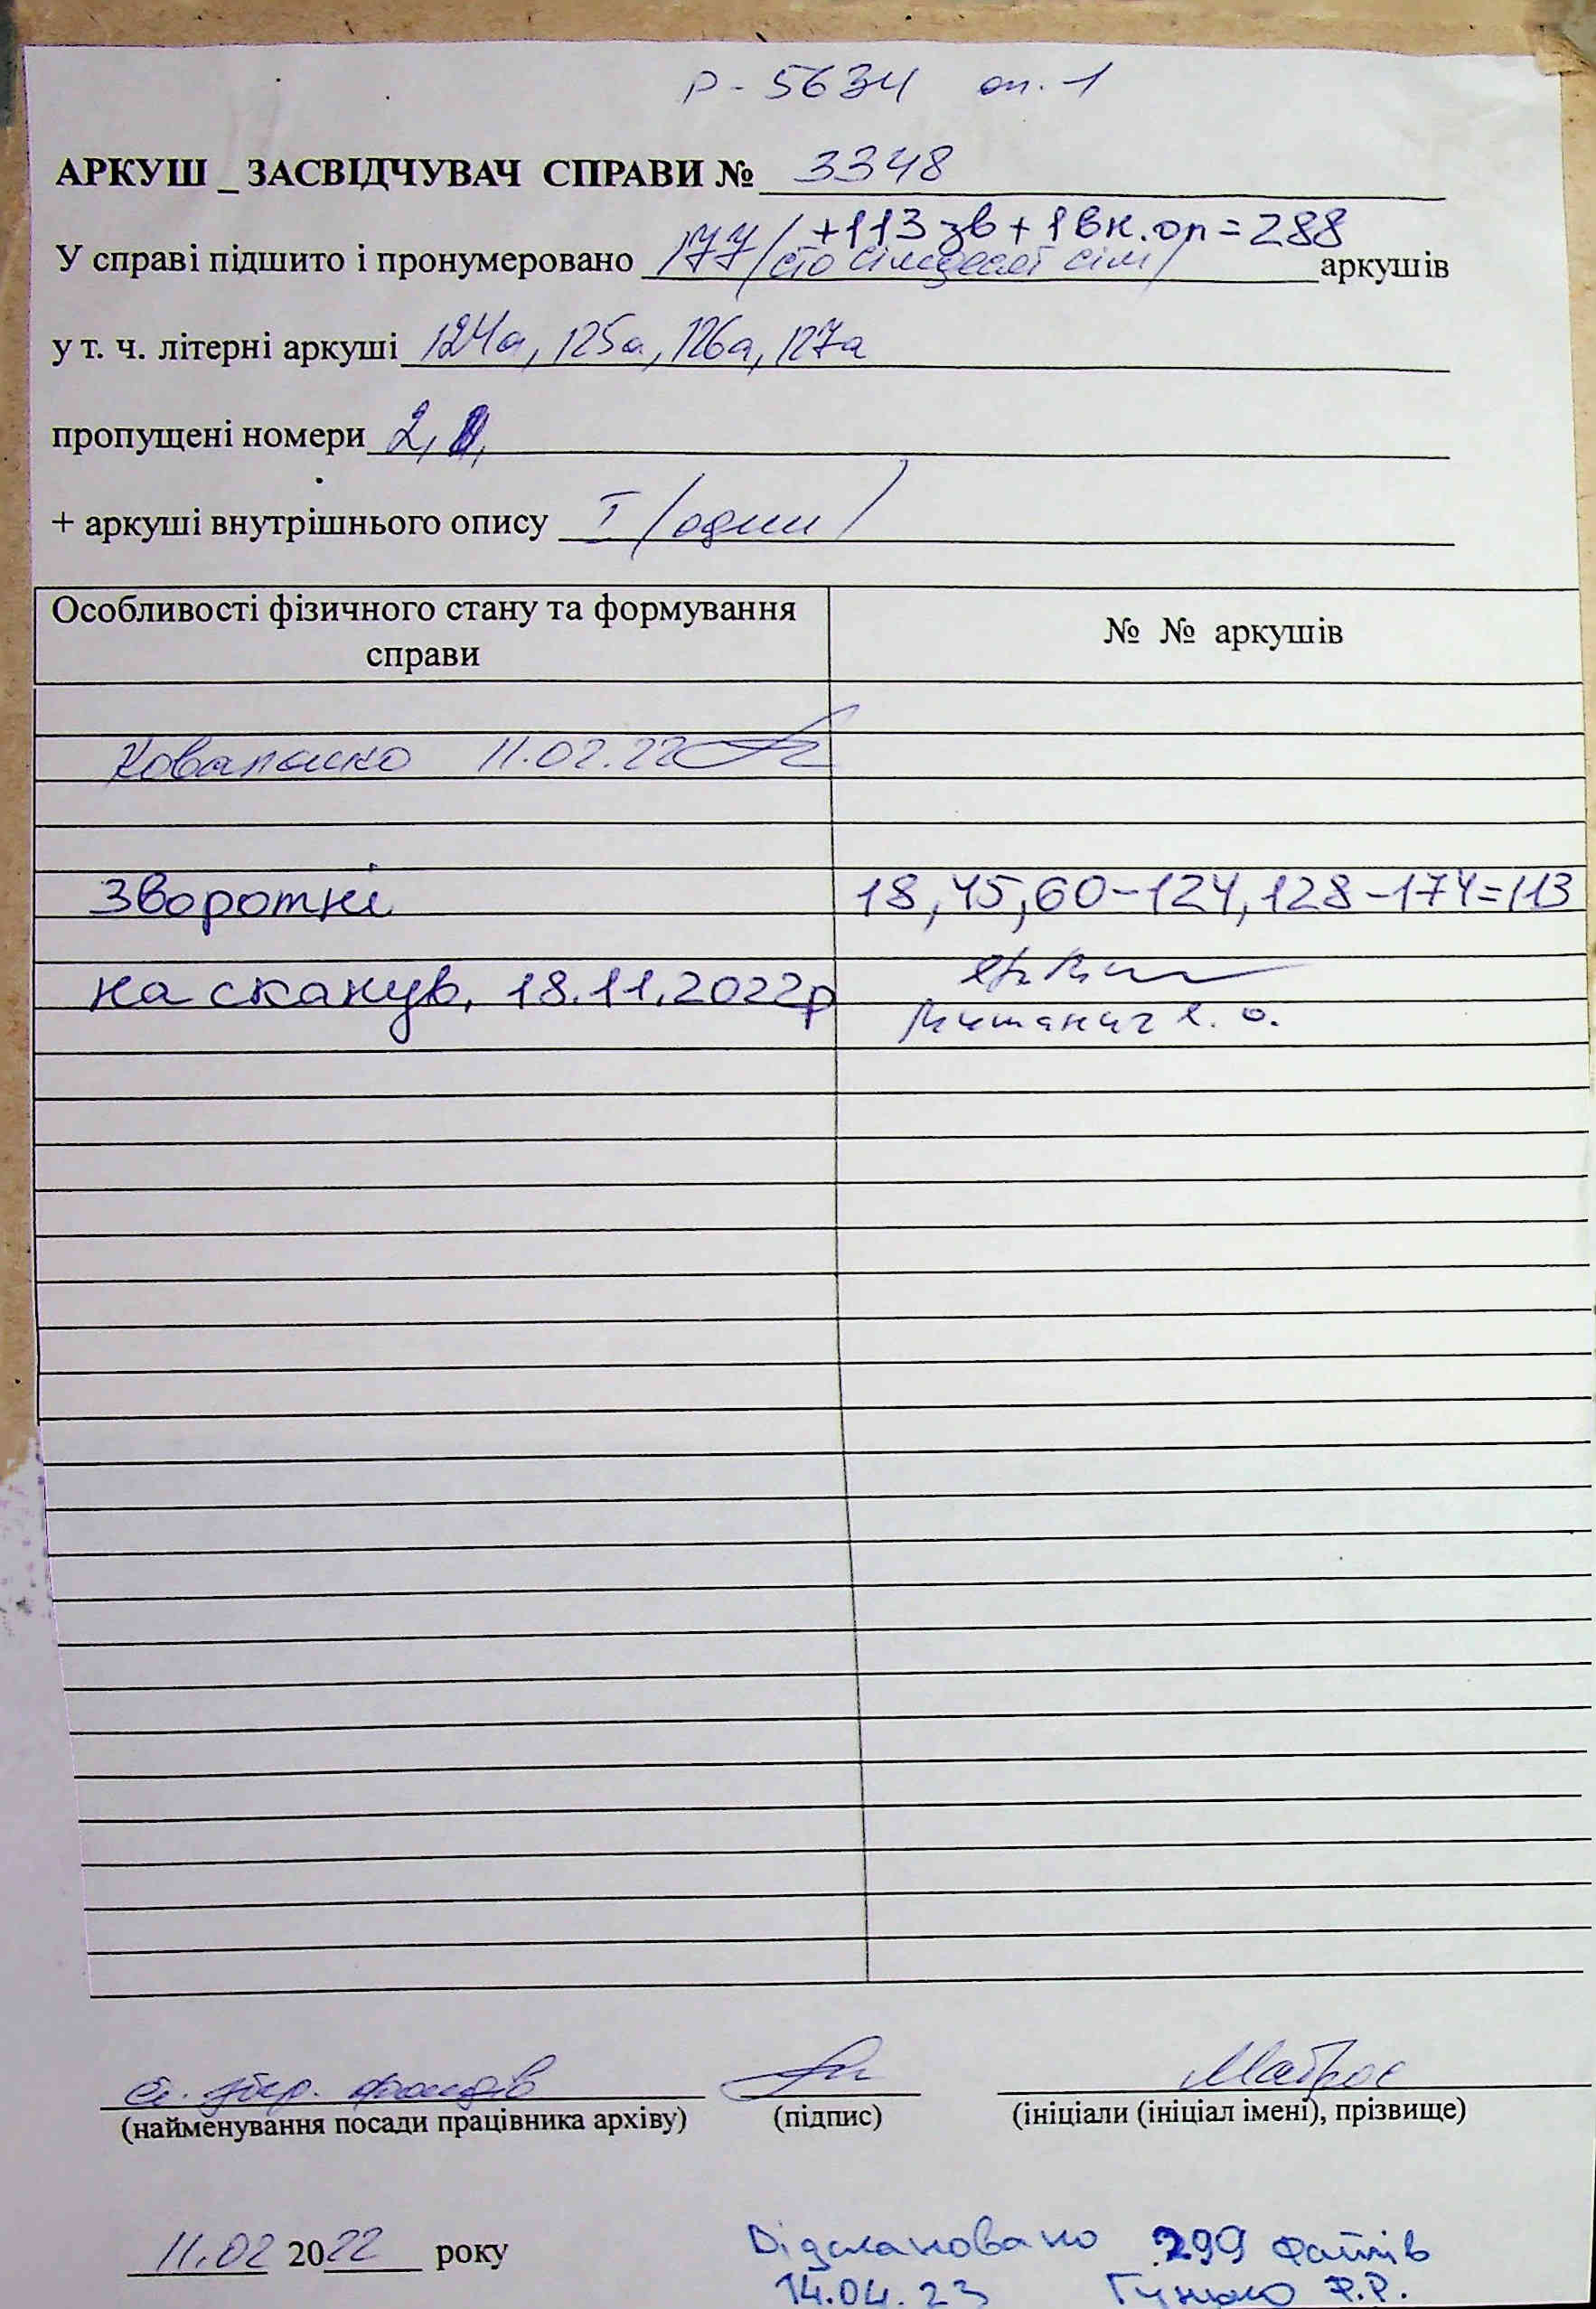 Р - 5634 оп. 1
АРКУШ _ ЗАСВІДЧУВАЧ СПРАВИ № 3348
+113 зв + 1 вн. оп = 288
У справі підшито і пронумеровано 177 /сто сімдесят сім/ аркушів
у т. ч. літерні аркуші 124а, 125а, 126а, 127а
пропущені номери 2,
+ аркуші внутрішнього опису I /один/
Особливості фізичного стану та формування справи
№ № аркушів
11.02.22
Зворотні 18, 45, 60-124, 128-174=113
на сканув. 18.11.2022р
(найменування посади працівника архіву) (підпис) (ініціали (ініціал імені), прізвище)
11.02 2022 року
Відскановано 299 файлів
14.04.23 Р.Р.